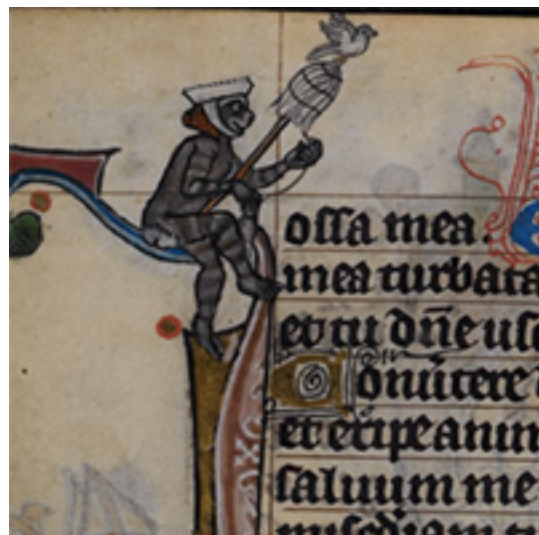 ossa mea.
mea turbata
et tu dñe us
onūtere
et eripe anim
saluum me